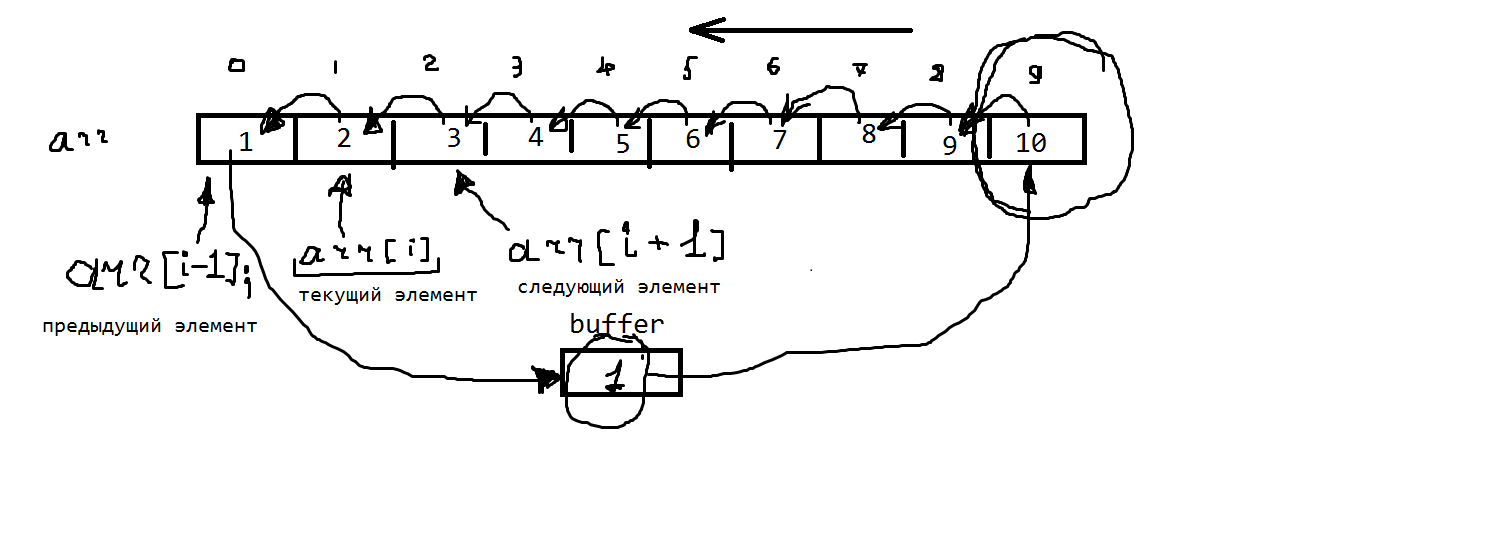 0 1 2 3 4 5 6 7 8 9
arr 1 2 3 4 5 6 7 8 9 10
arr[i-1];
предыдущий элемент
arr[i]
текущий элемент
arr[i+1]
следующий элемент
buffer
1